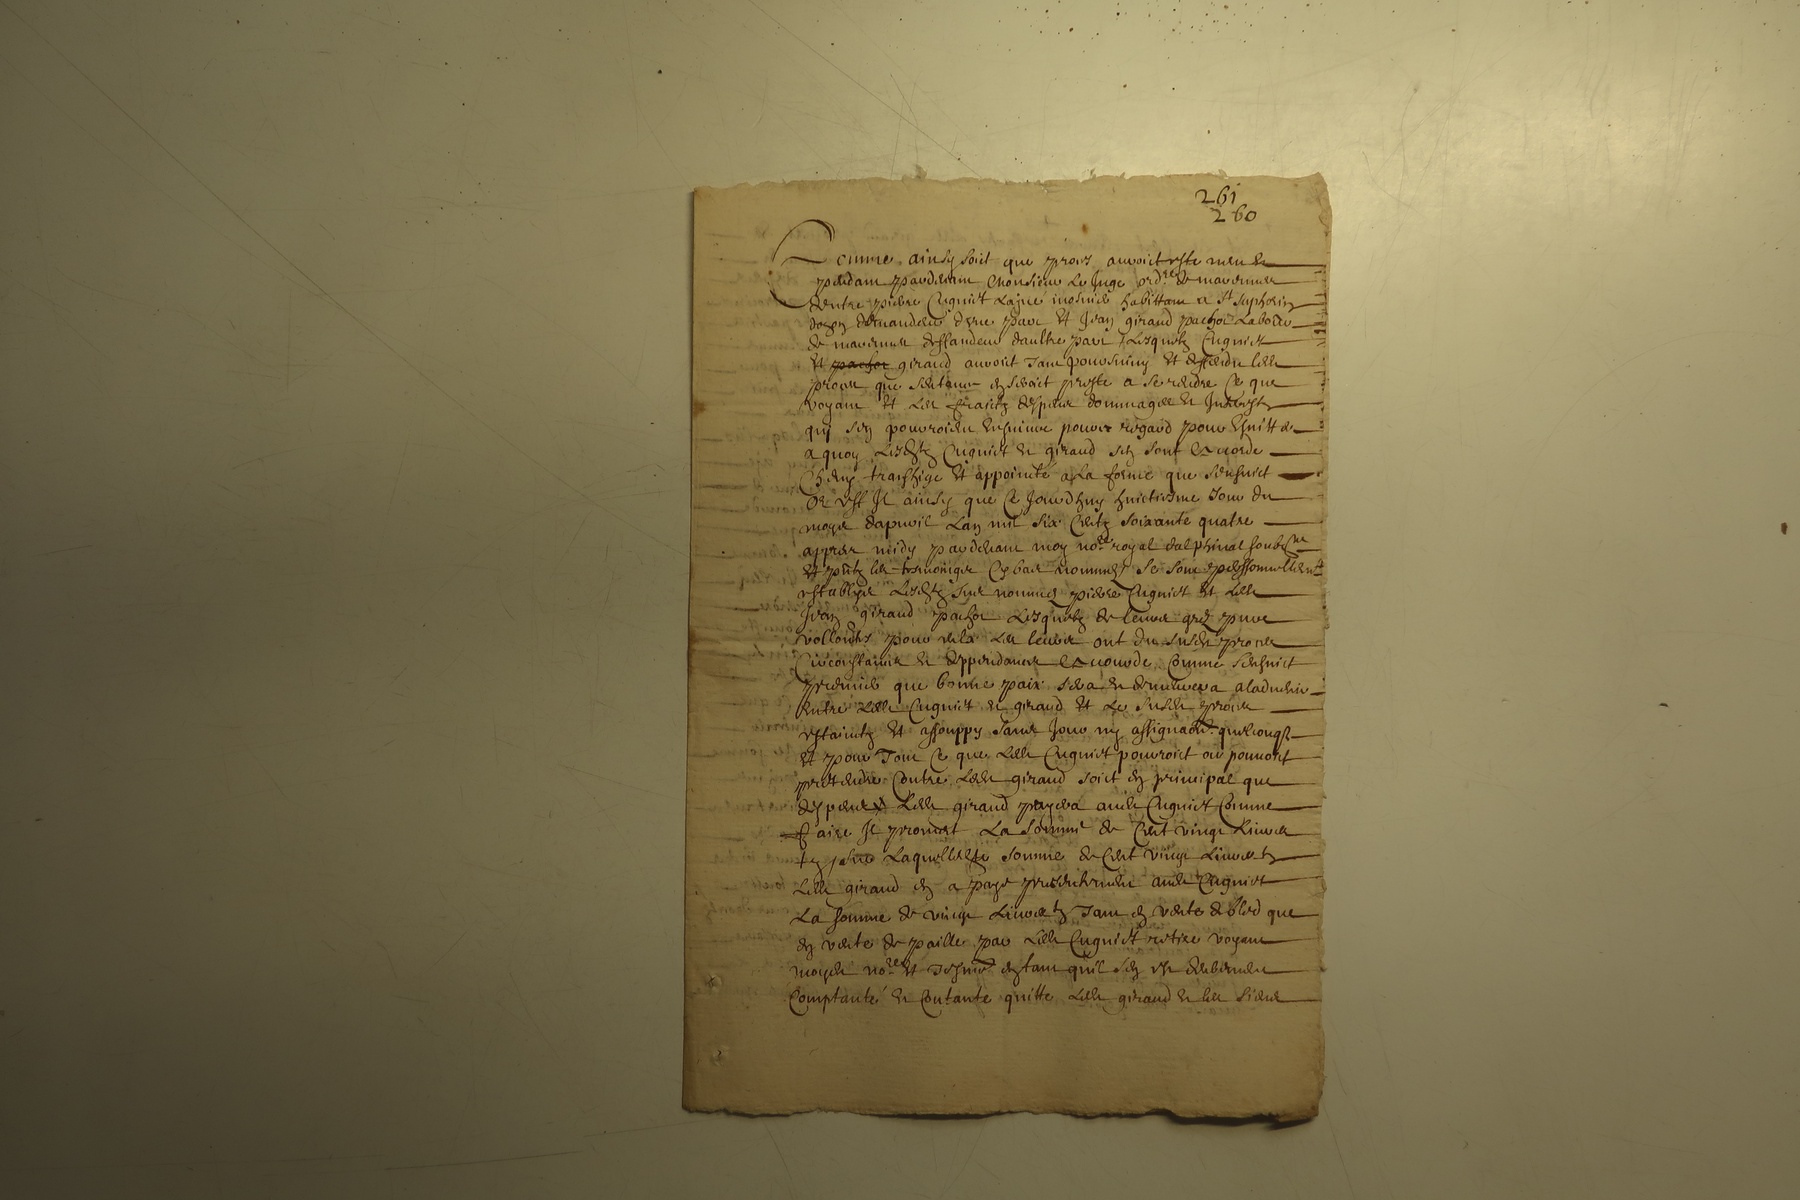 261
260
Comme ainsy soict que proces auroict este meu et
pendant pardevant Monsieur le Juge ord.re de
dentre pierre Cugniet habittant a St Saphorin
demandeur dune part et Jean giraud pachot
de deffandeur daultre part Lesquelz Cugniet
et pachot giraud auroict tant poursuivy et deffendu led
proces que sentence en seroict preste a se rendre Ce que
voyant et les fraictz despens dommages et Interest
qui sen pourroient ensuivre pour
a quoy Lesdtz Cugniet et giraud sen sont accorde
transhige et appointe a la forme que sensuict
Or est Il ainsy que Ce Jourdhuy huictiesme Jour du
moys dapvril Lan mil six Centz soixante quatre
appres midy pardevant moy no.re royal dalphinal soub.ne
et pntz les tesmoinges Cy bas nommes se sont personnellem.t
establys Lesdtz sus nommes pierre Cugniet et led
Jean giraud pachot Lesquelz de leurs grez pures
vollontes pour eulx les leurs ont du susd proces
Circonstances et deppendances accorde Comme sensuict
premier que bonne paix sera et demeurera aladvenir
entre led Cugniet et giraud et le susd proces
estainctz et assouppy sans Jour ny assignaon quelconq
et pour tout Ce que led Cugniet pourroict ou pouvoit
pretendre Contre led giraud soict en principal que
despens led giraud payera aud Cugniet Comme
faire Il promet La somme de Cent vingt Livres
tz sur Laquelle somme de Cent vingt Livres tz
led giraud en a paye presentement aud Cugniet
La somme de vingt Livres tz tant en vente de bled que
en vente de paille par led Cugniet retire voyant
moyd no.re et tesmo.s en tant quil sen est
Comptante et Contante quitte led giraud et les siens